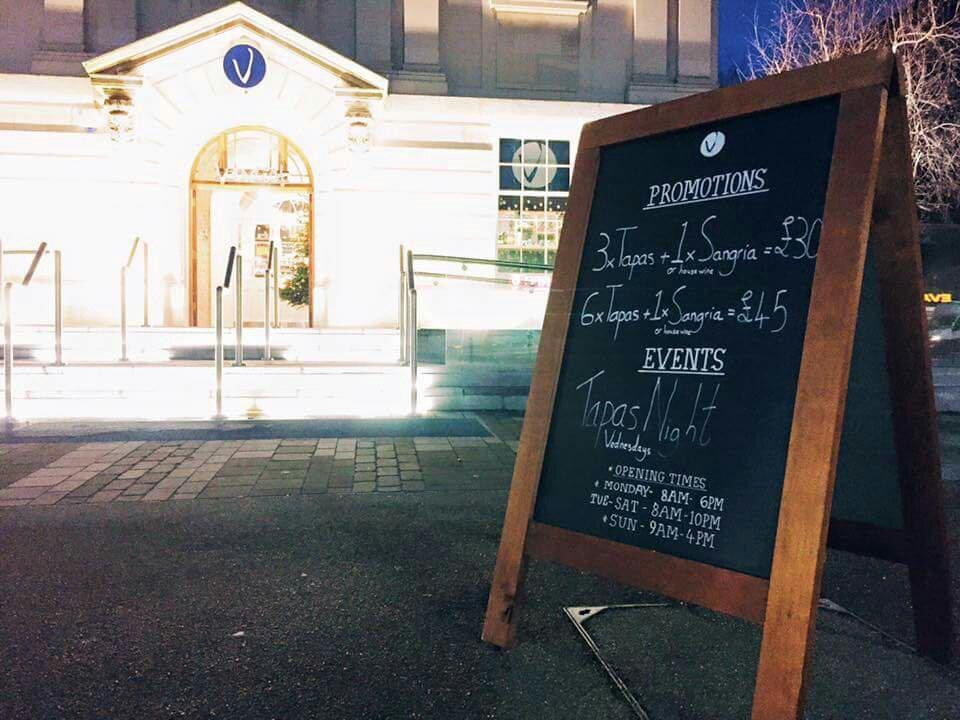 V
V
V
PROMOTIONS
3xTapas + 1xSangria = £30
or house wine
6xTapas + 1xSangria = £45
or house wine
EVENTS
Tapas Night
Wednesdays
* OPENING TIMES
* MONDAY - 8AM - 6PM
TUE - SAT - 8AM - 10PM
* SUN - 9AM - 4PM